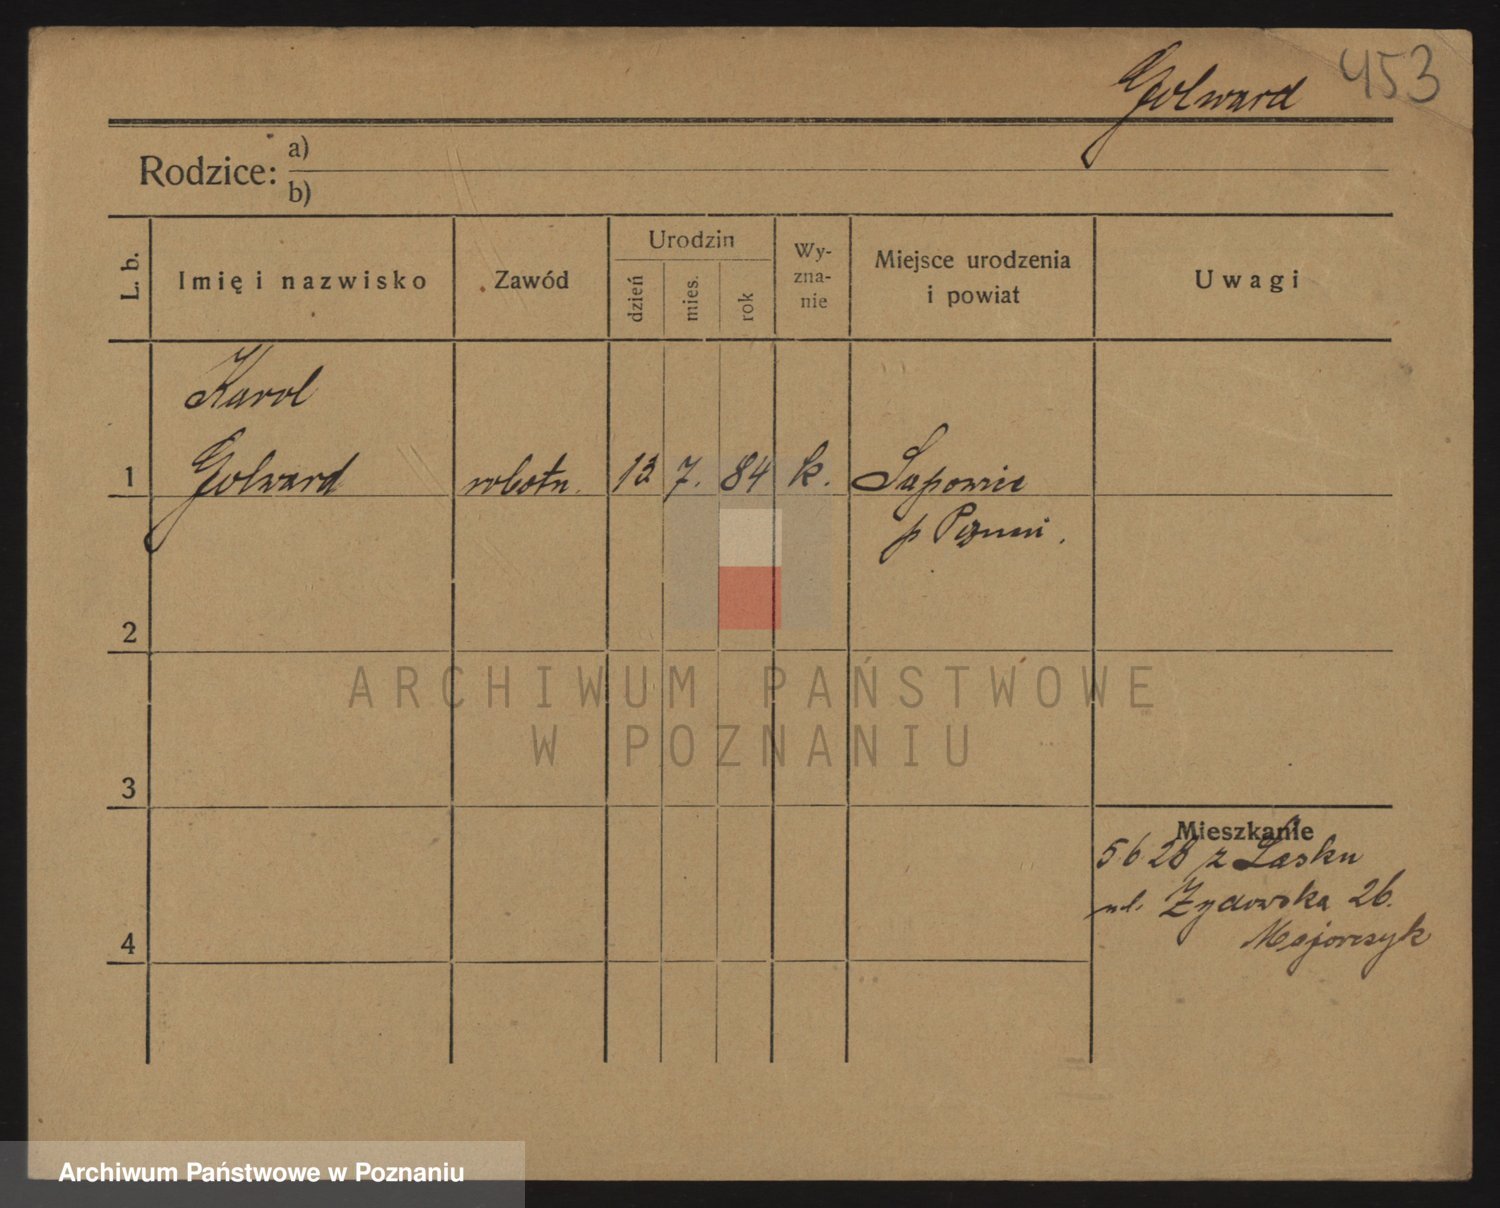 Golward 453
Rodzice: a)
b)
L. b. Imię i nazwisko Zawód Urodzin dzień mies. rok Wyznanie Miejsce urodzenia i powiat Uwagi
Karol
1 Golward robotn. 13 7. 84 k. Sapowie
p Poznań.
2
ARCHIWUM PAŃSTWOWE
W POZNANIU
3
Mieszkanie
5 6 28 z Lasku
4 ul. Żydowska 26.
Majorczyk
Archiwum Państwowe w Poznaniu